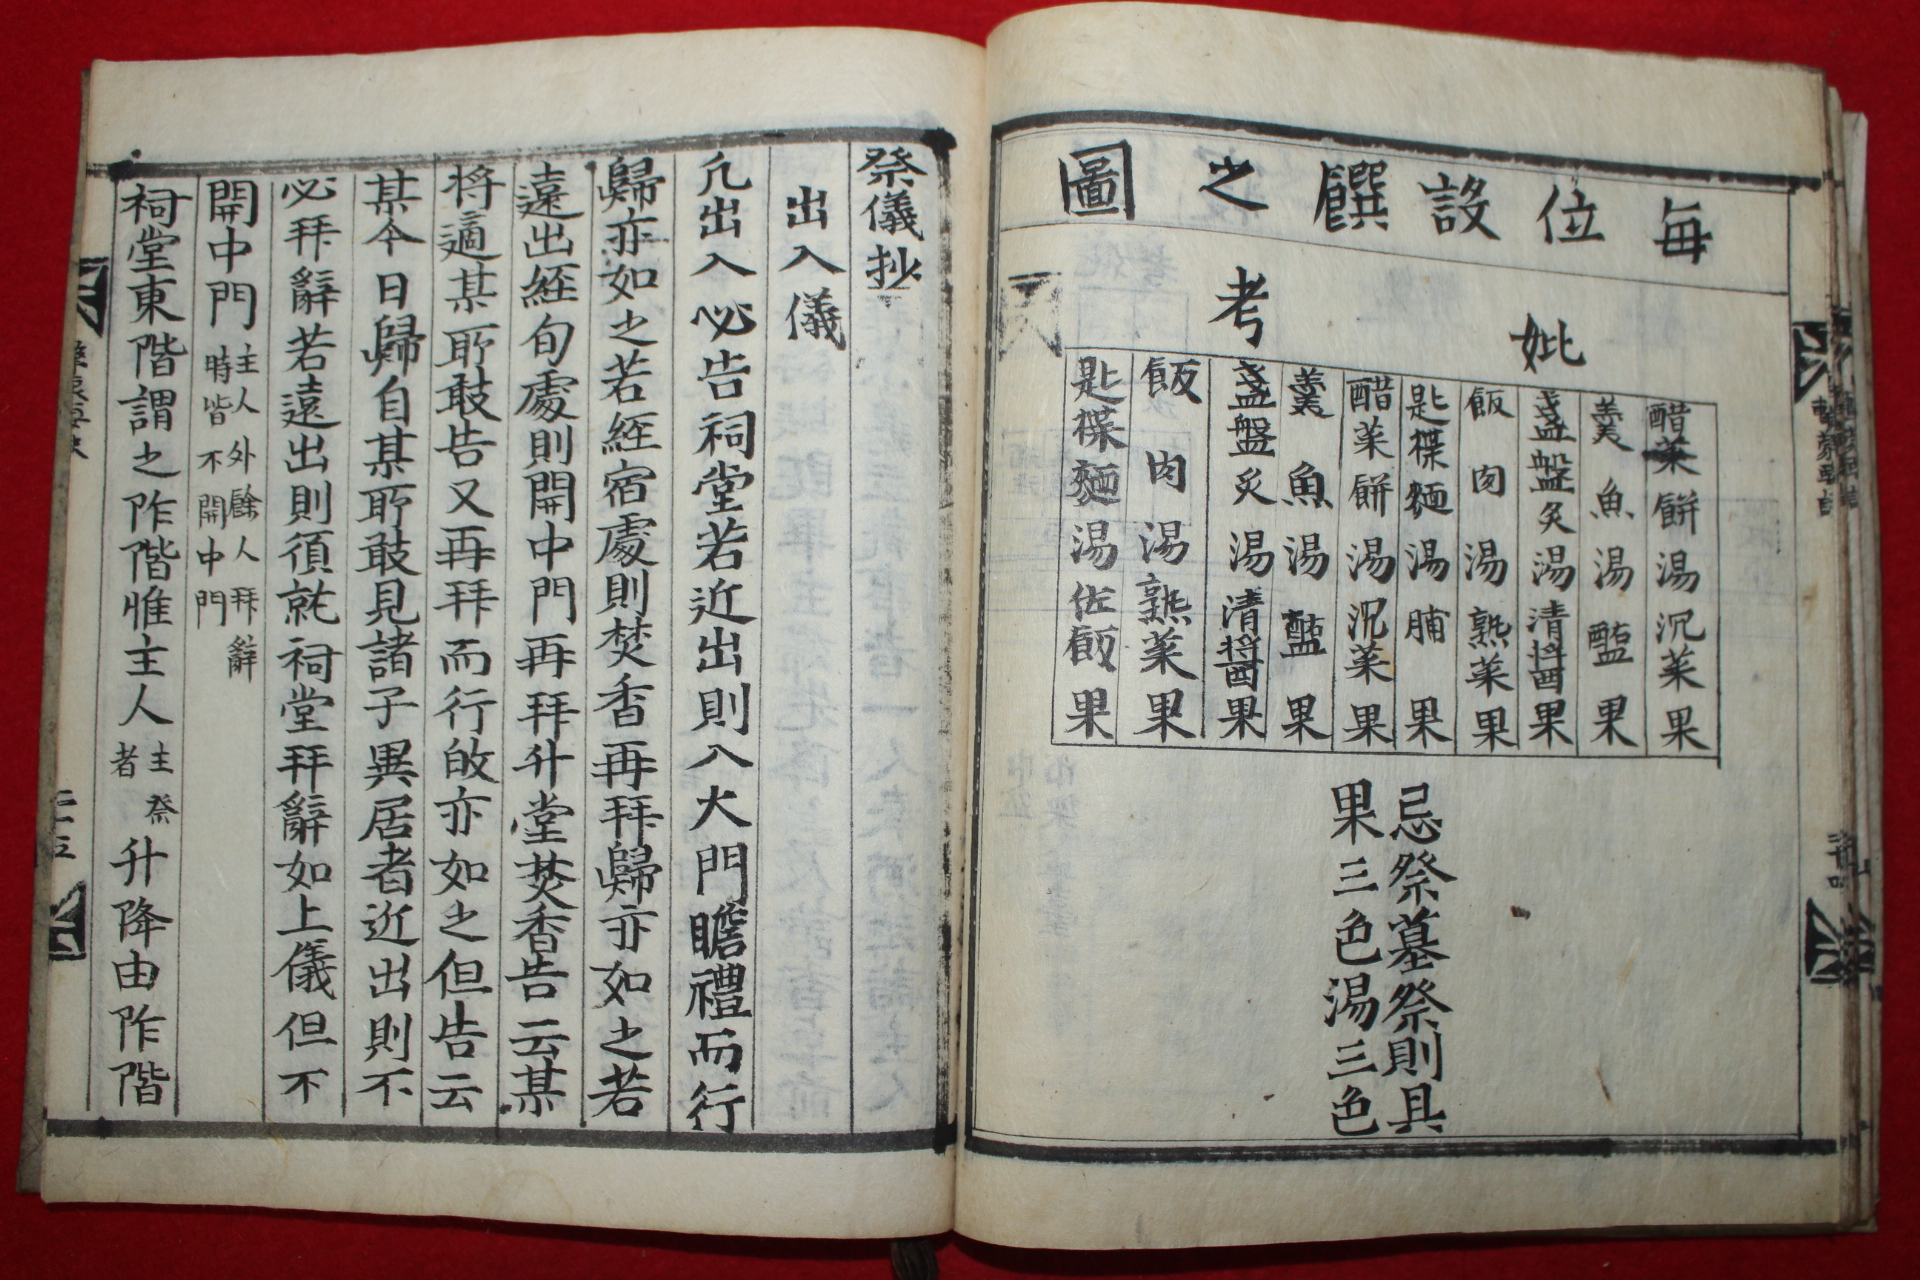 每位設饌之圖
妣
考
醋菜 餠 湯 沉菜 果
羹 魚 湯 醢 果
盞盤 炙 湯 清醬 果
飯 肉 湯 熟菜 果
匙楪 麵 湯 脯 果
醋菜 餠 湯 沉菜 果
羹 魚 湯 醢 果
盞盤 炙 湯 清醬 果
飯 肉 湯 熟菜 果
匙楪 麵 湯 佐飯 果
忌祭墓祭則具
果三色湯三色
祭儀抄
出入儀
凡出入必告祠堂若近出則入大門瞻禮而行
歸亦如之若経宿處則焚香再拜歸亦如之若
遠出経旬處則開中門再拜升堂焚香告云某
将適某所敢告又再拜而行故亦如之但告云
某今日歸自某所敢見諸子異居者近出則不
必拜辭若遠出則須就祠堂拜辭如上儀但不
開中門
主人外餘人拜辭
時皆不開中門
祠堂東階謂之阼階惟主人
主祭
者
升降由阼階